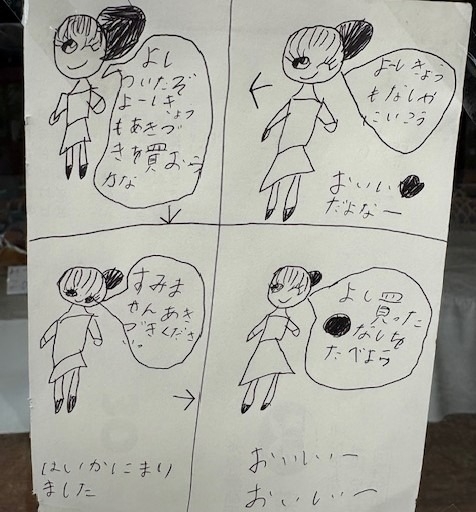 よーしきょう
もなしや
にいこう
おいしい
だよなー
よし
ついたぞ
よーしきょう
もあきづ
きを買おう
かな
すみま
せんあき
づきくださ
い。
はいかしこまり
ました
よし買った
なしを
たべよう
おいしいー
おいしいー